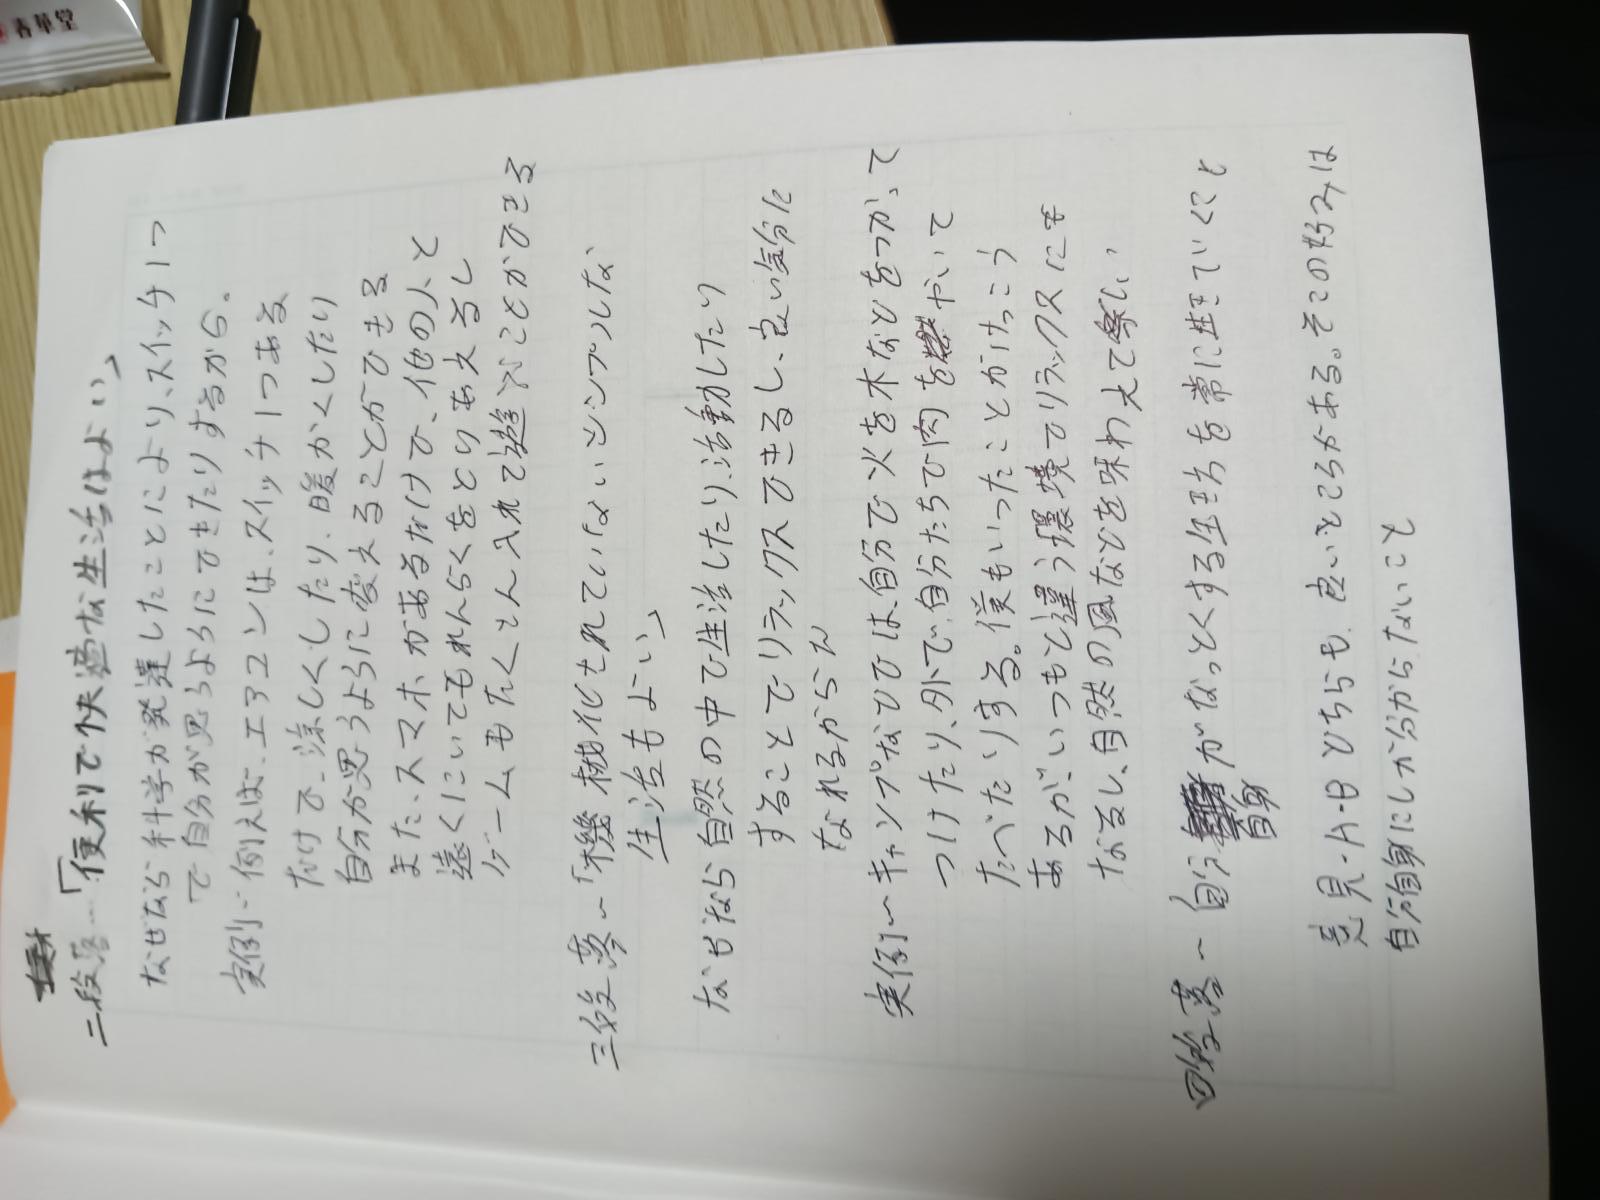 春華堂
二段落…「便利で快適な生活はよい」
なぜなら科学が発達したことにより、スイッチ1つ
で自分が思うようにできたりするから。
実例~例えば、エアコンは、スイッチ1つある
だけで、涼しくしたり、暖かくしたり
自分が思うように変えることができる
また、スマホがあるだけで、他の人と
遠くにいてもれんらくをとりあえるし
ゲームもたくさん入れて遊ぶことができる
三段落~「機械化されていないシンプルな
生活もよい」
なぜなら自然の中で生活したり、活動したり
することでリラックスできるし、良い気分に
なれるから
実例~キャンプなどでは、自分で火を木などをつかって
つけたり、外で、自分たちで肉をやいて
たべたりする。僕もいったことがけっこう
あるがいつもと違う環境でリラックスにも
なるし、自然の風などを味わえて楽しい
四段落~自分自身がなっとくする生き方を常に生きていくこと
意見・A・Bどちらも、良いところがある。その好みは
自分自身にしか分からないこと